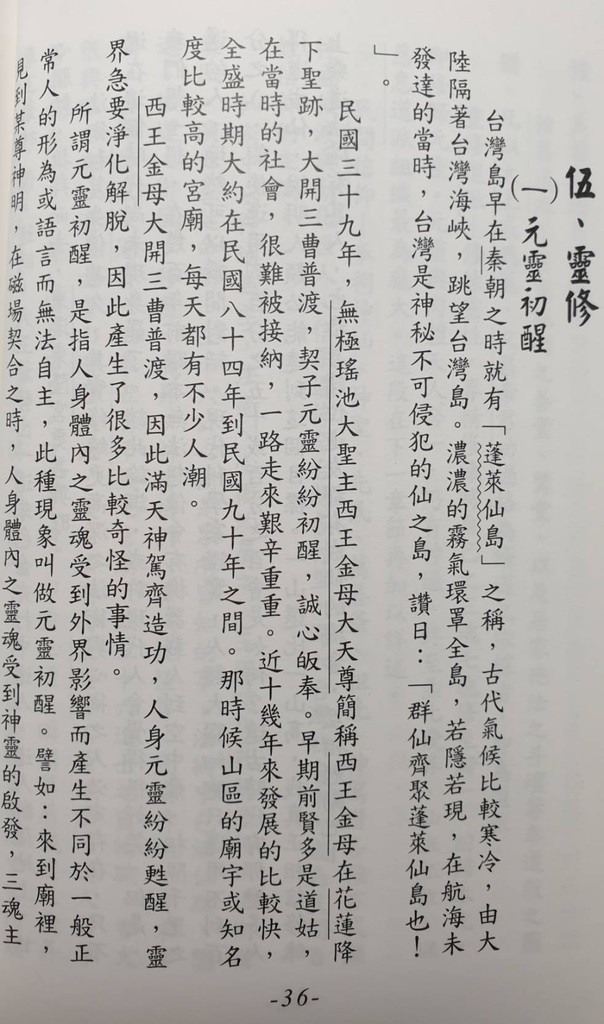 伍、靈修
(一)元靈初醒
台灣島早在秦朝之時就有「蓬萊仙島」之稱，古代氣候比較寒冷，由大
陸隔著台灣海峽，跳望台灣島。濃濃的霧氣環罩全島，若隱若現，在航海未
發達的當時，台灣是神秘不可侵犯的仙之島，讚日：「群仙齊聚蓬萊仙島也！
」。
民國三十九年，無極瑤池大聖主西王金母大天尊簡稱西王金母在花蓮降
下聖跡，大開三曹普渡，契子元靈紛紛初醒，誠心皈奉。早期前賢多是道姑，
在當時的社會，很難被接納，一路走來艱辛重重。近十幾年來發展的比較快，
全盛時期大約在民國八十四年到民國九十年之間。那時候山區的廟宇或知名
度比較高的宮廟，每天都有不少人潮。
西王金母大開三曹普渡，因此滿天神駕齊造功，人身元靈紛紛甦醒，靈
界急要淨化解脫，因此產生了很多比較奇怪的事情。
所謂元靈初醒，是指人身體內之靈魂受到外界影響而產生不同於一般正
常人的形為或語言而無法自主，此種現象叫做元靈初醒。譬如：來到廟裡，
見到某尊神明，在磁場契合之時，人身體內之靈魂受到神靈的啟發，三魂主
-36-